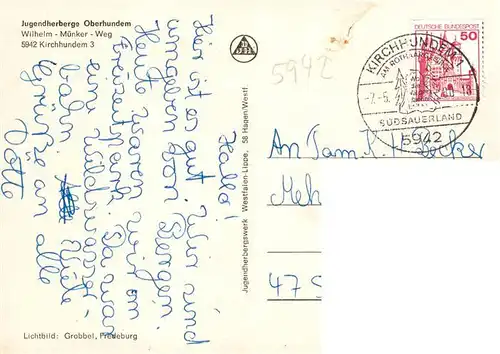 Jugendherberge Oberhundem
Wilhelm - Münker - Weg
5942 Kirchhundem 3
Hallo!
Hier ist es gut. Wir sind
umgeben von Bergen.
Heute waren wir im
Da war
eine Wildwasser
bahn. Viele
Grüße an alle
5942
DEUTSCHE BUNDESPOST
50
KIRCHHUNDEM
-7.-5.
13
SÜDSAUERLAND
5942
An Fam. K.
47
Jugendherbergswerk Westfalen-Lippe, 58 Hagen/Westf.
Lichtbild: Grobbel, Fredeburg